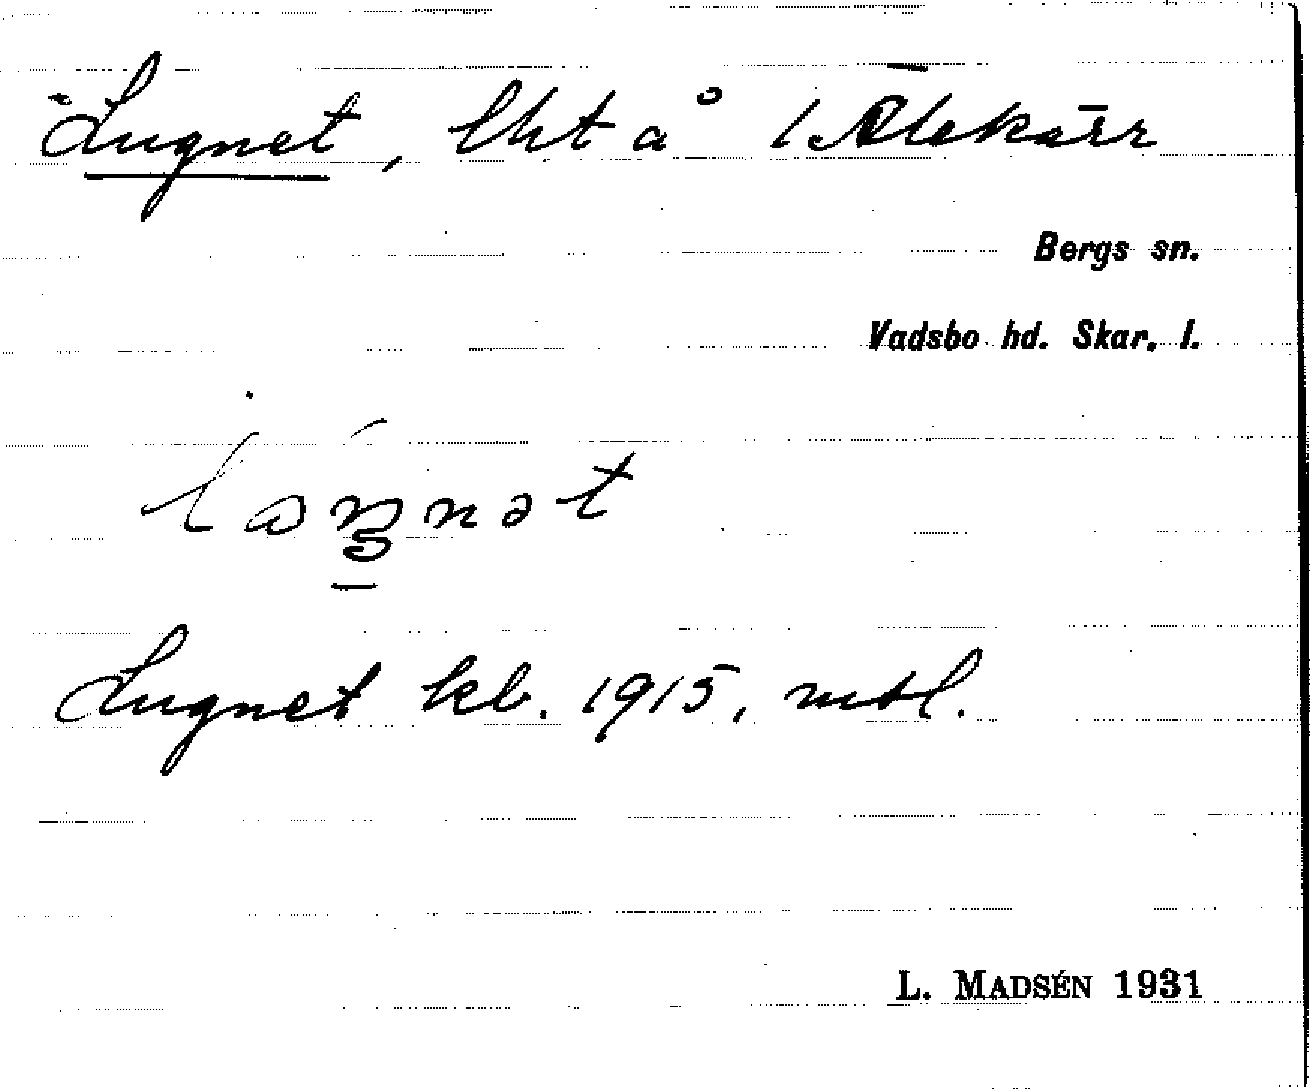 Lugnet, lht å 1 Älekärr
Bergs sn.
Vadsbo hd. Skar. l.
Lugnet kb. 1915, mtl.
L. MADSÉN 1931